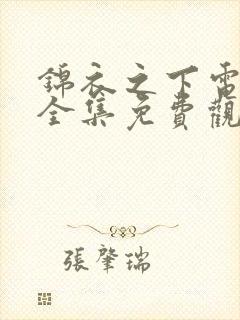 錦衣之下電
全集免費觀
張肇瑞